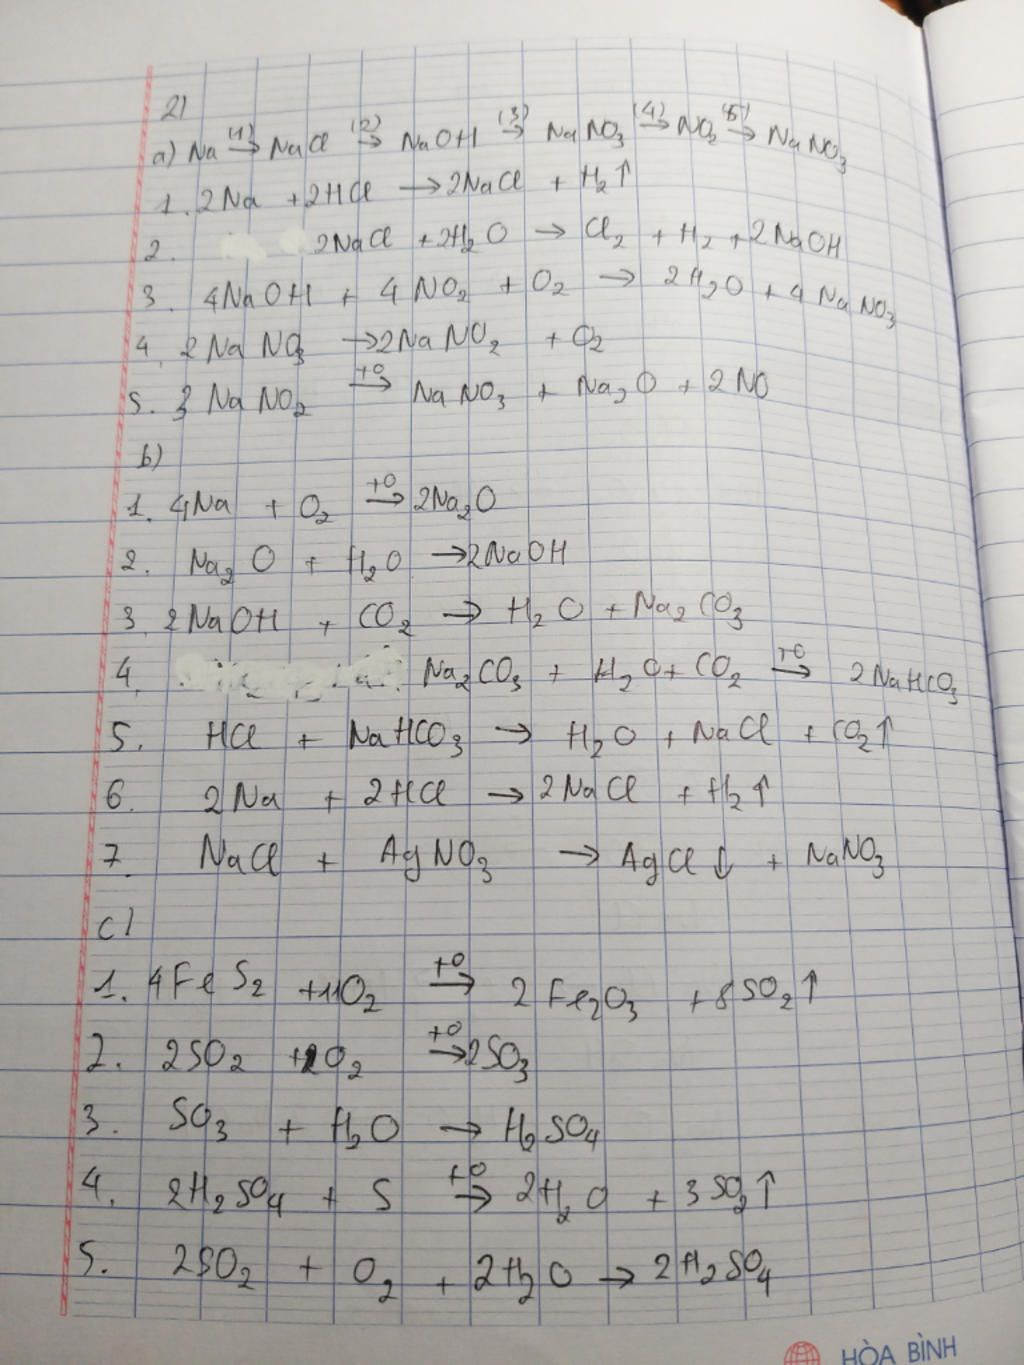 2)
a) Na (1)→ NaCl (2)→ NaOH (3)→ NaNO₃ (4)→ NO₂ (5)→ NaNO₃
1. 2Na + 2HCl → 2NaCl + H₂↑
2. 2NaCl + 2H₂O → Cl₂ + H₂ + 2NaOH
3. 4NaOH + 4NO₂ + O₂ → 2H₂O + 4NaNO₃
4. 2NaNO₃ → 2NaNO₂ + O₂
5. 3NaNO₂ +0→ NaNO₃ + Na₂O + 2NO
b)
1. 4Na + O₂ +0→ 2Na₂O
2. Na₂O + H₂O → 2NaOH
3. 2NaOH + CO₂ → H₂O + Na₂CO₃
4. Na₂CO₃ + H₂O + CO₂ +0→ 2NaHCO₃
5. HCl + NaHCO₃ → H₂O + NaCl + CO₂↑
6. 2Na + 2HCl → 2NaCl + H₂↑
7. NaCl + AgNO₃ → AgCl↓ + NaNO₃
c)
1. 4FeS₂ + 11O₂ +0→ 2Fe₂O₃ + 8SO₂↑
2. 2SO₂ + O₂ +0→ 2SO₃
3. SO₃ + H₂O → H₂SO₄
4. 2H₂SO₄ + S +0→ 2H₂O + 3SO₂↑
5. 2SO₂ + O₂ + 2H₂O → 2H₂SO₄
HÒA BÌNH